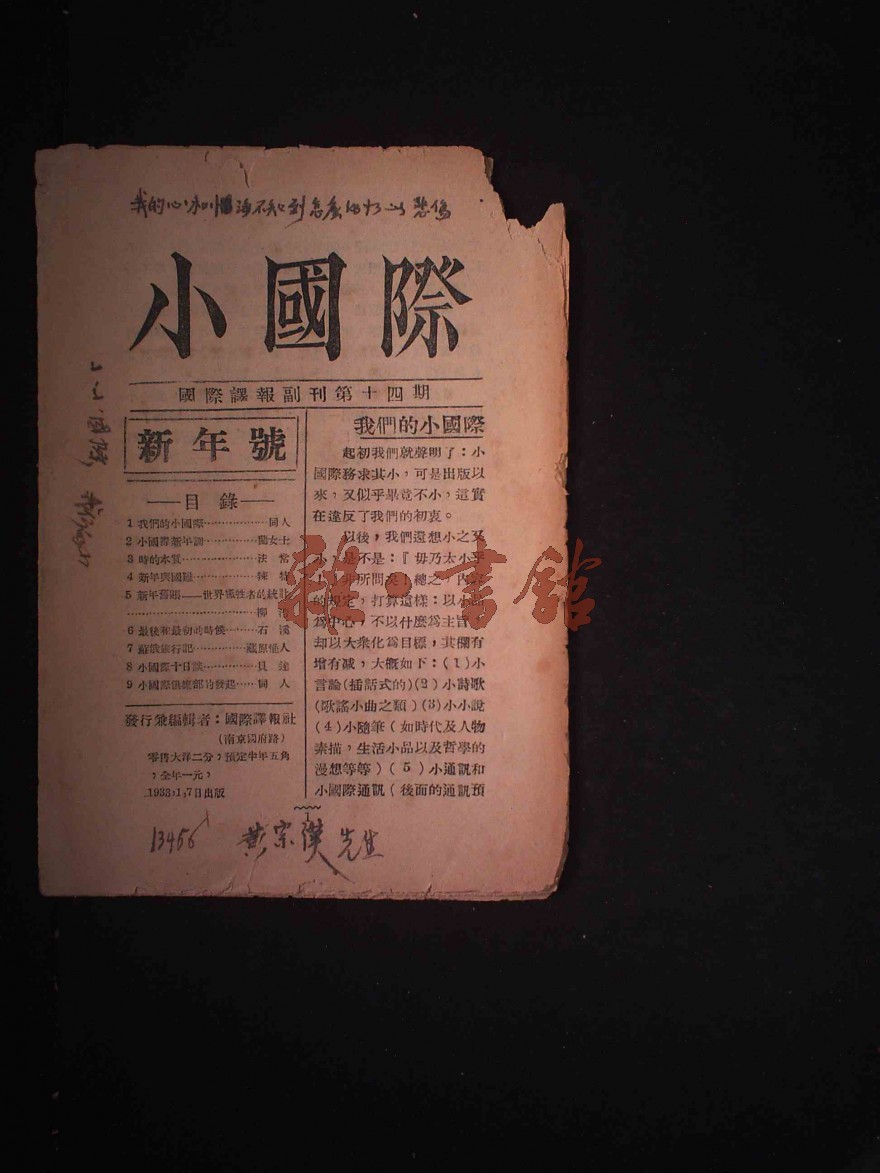 我的心
不知到怎麼
悲傷
小國際
國際譯報副刊第十四期
新年號
——目錄——
1 我們的小國際………………同人
2 小國際新年調………………女士
3 時的本質………………法常
4 新年與國難………………陳
5 新年
——世界犧牲者的統計
………………柳
6 最後和最初的時候………石
7 蘇俄旅行記…………藏原惟人
8 小國際十日談……………
9 小國際俱樂部的發起……同人
發行兼編輯者：國際譯報社
(南京國府路)
零售大洋二分，預定半年五角
，全年一元，
1933,1,7日出版
我們的小國際
起初我們就聲明了：小
國際務求其小，可是出版以
來，又似乎畢竟不小，這實
在違反了我們的初衷。
以後，我們還想小之又
小，是不是：『毋乃太小乎
』非所問矣！總之，內容
的規定，打算這樣：以小品
為中心，不以什麼為主旨，
却以大衆化為目標，其欄有
增有減，大概如下：(1)小
言論(插話式的)(2)小詩歌
(歌謠小曲之類)(3)小小說
(4)小隨筆(如時代及人物
素描，生活小品以及哲學的
漫想等等)(5)小通訊和
小國際通訊(後面的通訊預
13456
黃宗漢先生
雜·書館